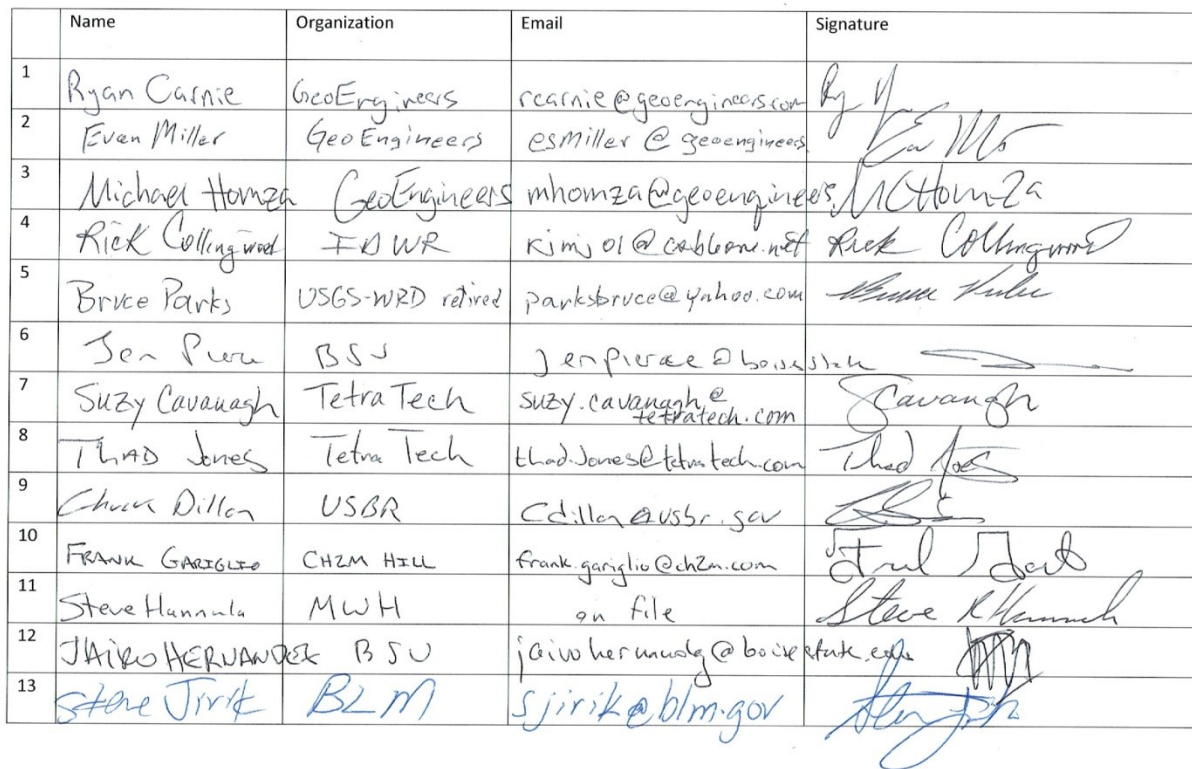 Name Organization Email Signature
1 Ryan Carnie GeoEngineers rcarnie@geoengineers.com
2 Evan Miller GeoEngineers esmiller @ geoengineers.
3 Michael Homza GeoEngineers mhomza@geoengineers. MCHomza
4 Rick Collingwood IDWR kimj01@cableone.net Rick Collingwood
5 Bruce Parks USGS-WRD retired parksbruce@yahoo.com
6 Jen BSU jenpierce@
7 Suzy Cavanagh Tetra Tech suzy.cavanagh@ SCavanagh
tetratech.com
8 THAD Jones Tetra Tech thad.Jones@tetratech.com Thad Jones
9 Chuck Dillon USBR Cdillon@usbr.gov
10 FRANK GARIGLIO CH2M HILL frank.gariglio@ch2m.com
11 Steve Hannula MWH on file Steve R Hannula
12 JAIRO HERNANDEZ BSU
13 Steve Jirik BLM sjirik@blm.gov